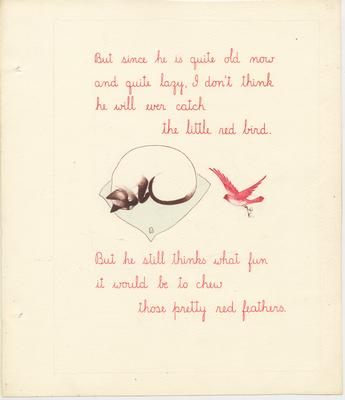 But since he is quite old now
and quite lazy, I don't think
he will ever catch
the little red bird.
But he still thinks what fun
it would be to chew
those pretty red feathers.